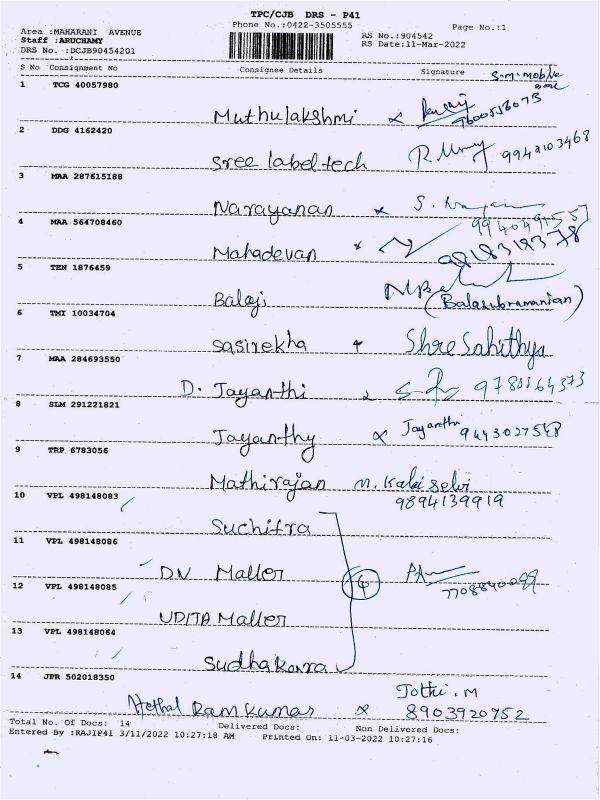 TPC/CJB DRS - P41
Phone No.:0422-3505555
Page No.:1
Area :MAHARANI AVENUE
Staff :ARUCHAMY
DRS No. :DCJB90454201
RS No.:904542
RS Date:11-Mar-2022
S No Consignment No Consignee Details Signature
S.M.mobile
1 TCG 40057980
Muthulakshmi x
2 DDG 4162420
Sree label tech 9942103468
3 MAA 287615188
Narayanan x
4 MAA 564708460
Mahadevan x
5 TEN 1876459
Balaji (Balasubramanian)
6 TMI 10034704
Sasirekha Shre Sahithya
7 MAA 284693550
D. Jayanthi
8 SLM 291221821
Jayanthy x Jayanthi 9443027548
9 TRP 6783056
Mathirajan M. Kalai Selvi
9894139919
10 VPL 498148083
Suchitra
11 VPL 498148086
DN Maller
12 VPL 498148085
UDITA Maller
13 VPL 498148064
Sudhakara
14 JPR 502018350
Jothi. M
Hethal Ram Kumar x 8903920752
Total No. Of Docs: 14 Delivered Docs: Non Delivered Docs:
Entered By :RAJIP4I 3/11/2022 10:27:18 AM Printed On: 11-03-2022 10:27:16